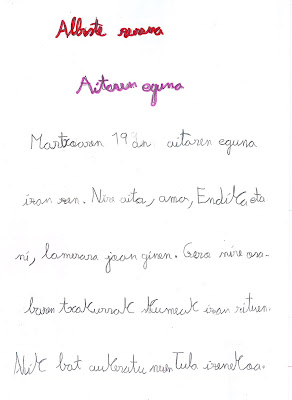 Albiste ona
Aitaren eguna
Martxoaren 19 an aitaren eguna
izan zen. Nire aita, ama, Endika, eta
ni, lamerara joan ginen. Gero nire osa-
baren txakurrak kumeak izan zituen.
Nik bat aukeratu nuen